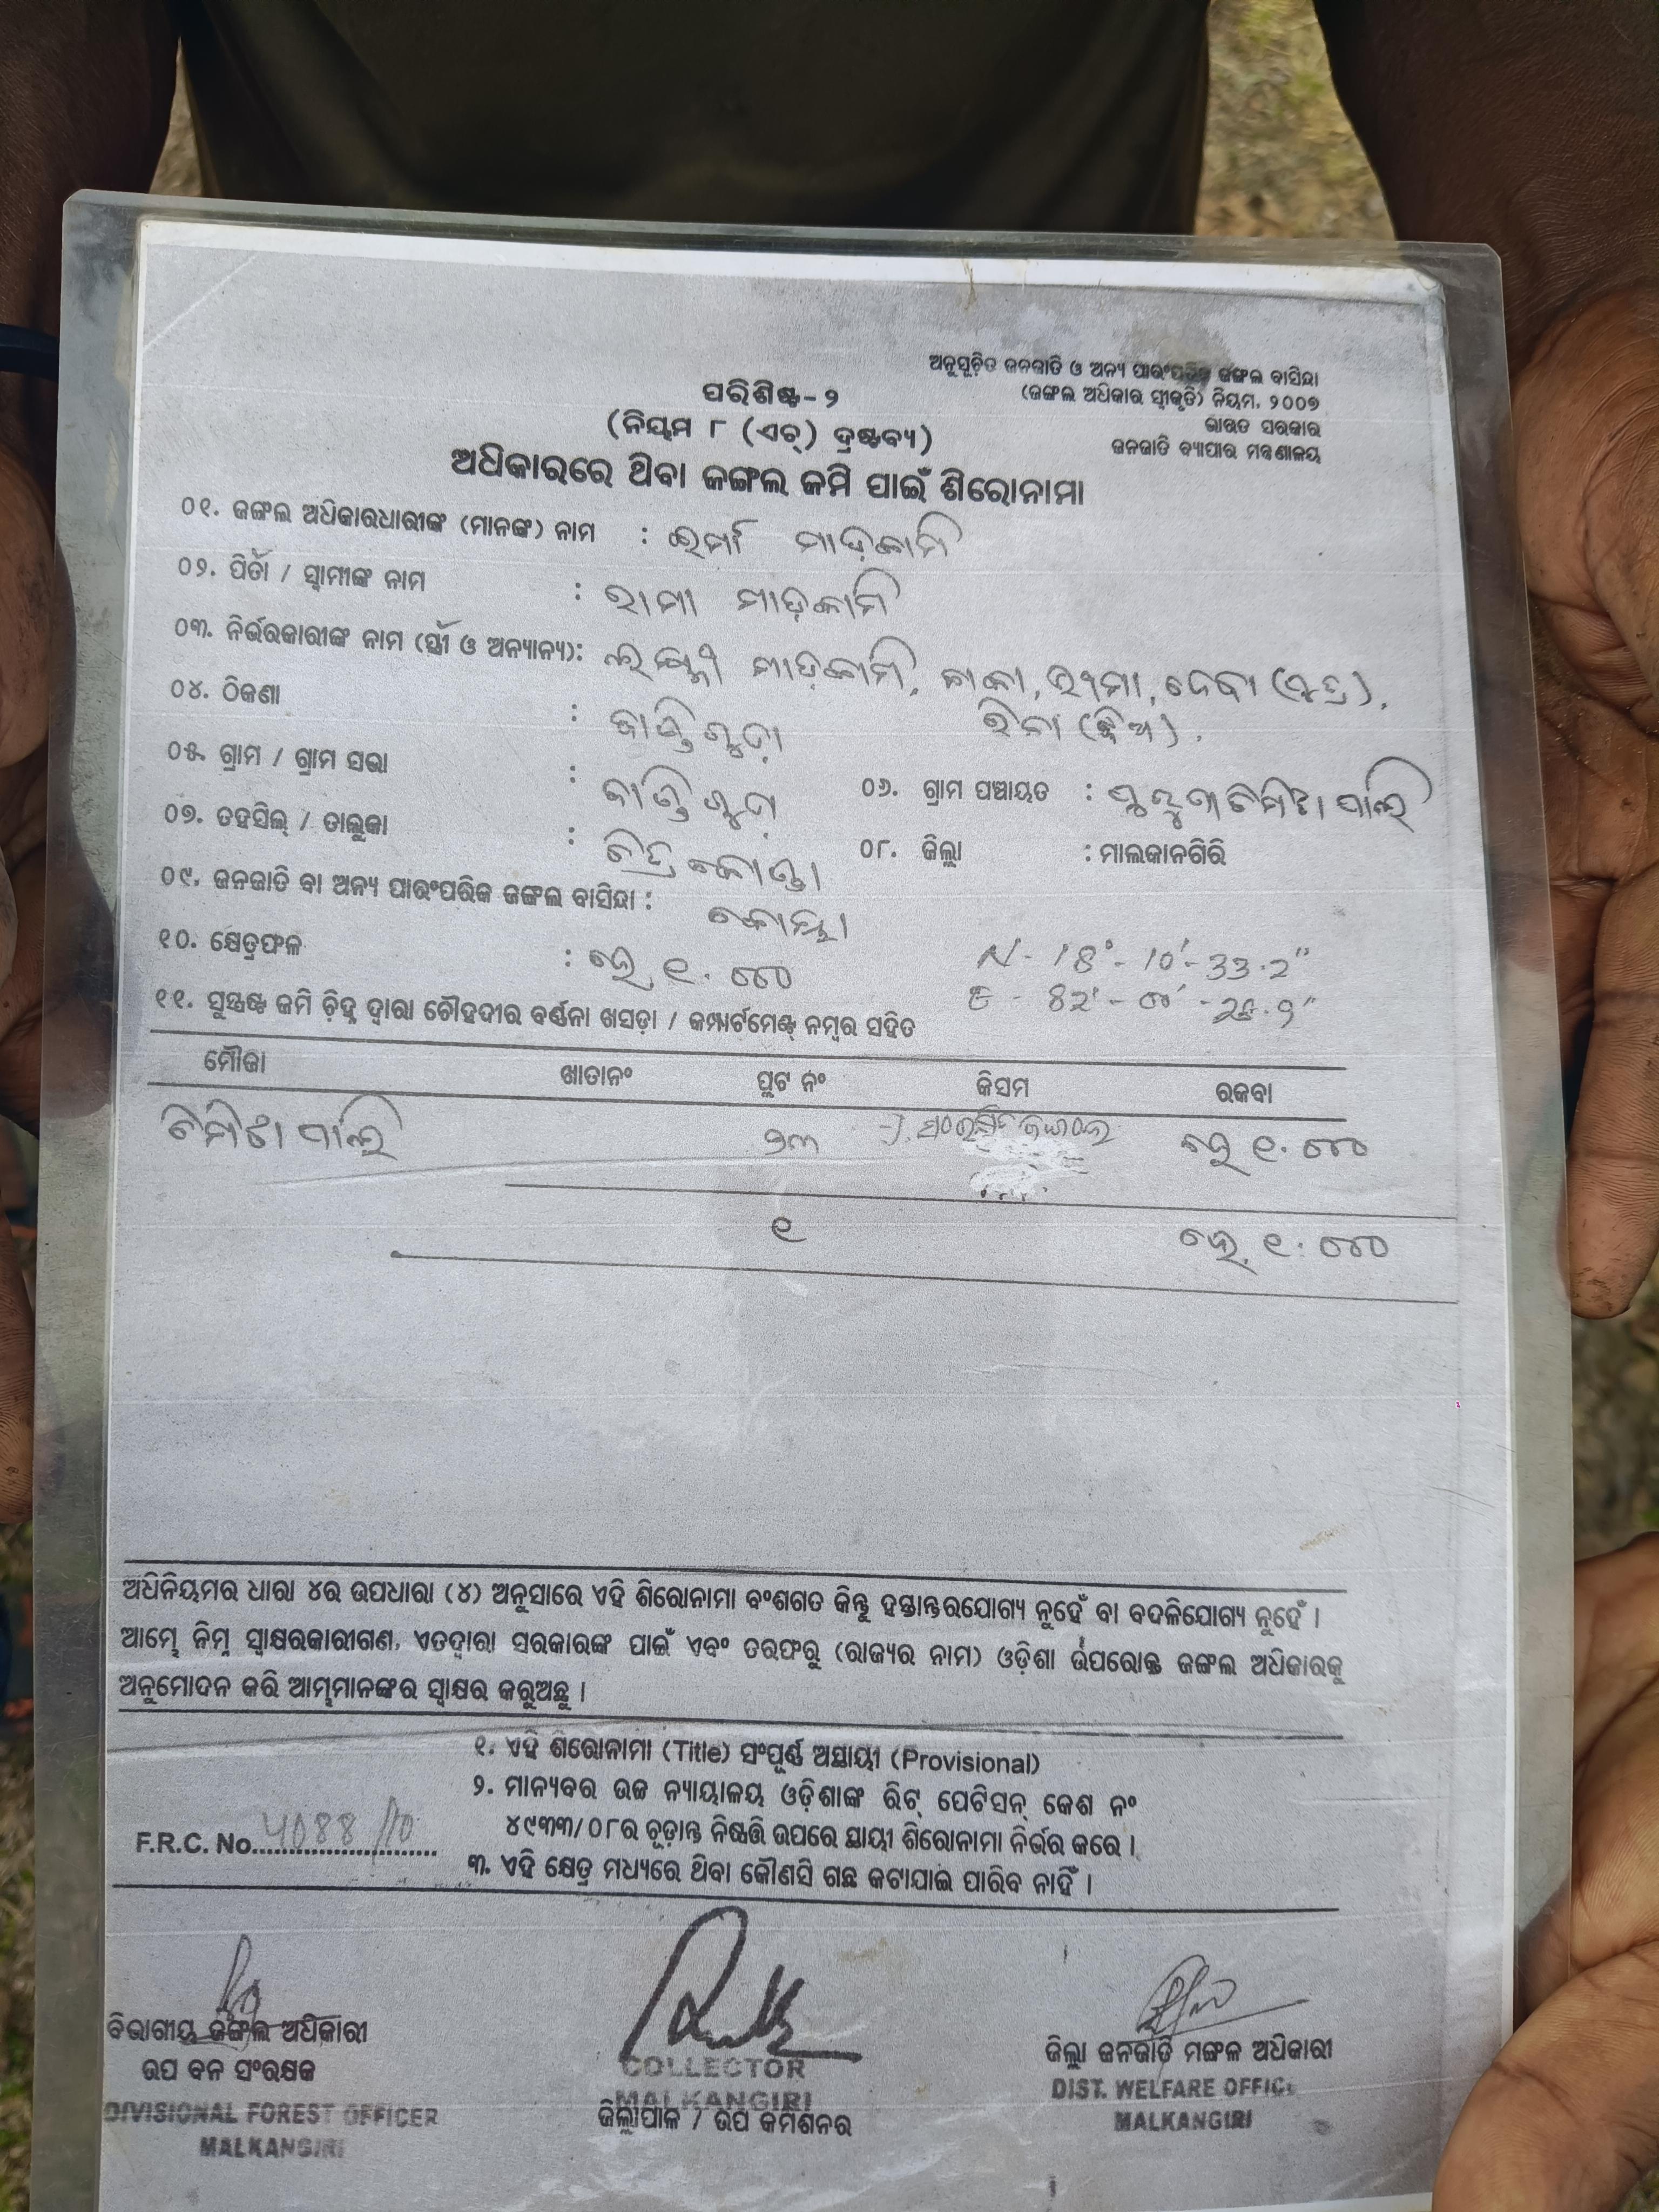 ଅନୁସୂଚିତ ଜନଜାତି ଓ ଅନ୍ୟ ପାରଂପରିକ ଜଙ୍ଗଲ ବାସିନ୍ଦା
(ଜଙ୍ଗଲ ଅଧିକାର ସ୍ୱୀକୃତି) ନିୟମ, ୨୦୦୭
ଭାରତ ସରକାର
ଜନଜାତି ବ୍ୟାପାର ମନ୍ତ୍ରଣାଳୟ
ପରିଶିଷ୍ଟ-୨
(ନିୟମ ୮ (ଏଚ୍) ଦ୍ରଷ୍ଟବ୍ୟ)
ଅଧିକାରରେ ଥିବା ଜଙ୍ଗଲ ଜମି ପାଇଁ ଶିରୋନାମା
୦୧. ଜଙ୍ଗଲ ଅଧିକାରଧାରୀଙ୍କ (ମାନଙ୍କ) ନାମ : ମାଡ଼କାମି
୦୨. ପିତା / ସ୍ୱାମୀଙ୍କ ନାମ : ରାମା ମାଡ଼କାମି
୦୩. ନିର୍ଭରକାରୀଙ୍କ ନାମ (ସ୍ତ୍ରୀ ଓ ଅନ୍ୟାନ୍ୟ): ମାଡ଼କାମି, ଦେବା (ପୁତ୍ର),
(ଝିଅ).
୦୪. ଠିକଣା :
୦୫. ଗ୍ରାମ / ଗ୍ରାମ ସଭା : ୦୬. ଗ୍ରାମ ପଞ୍ଚାୟତ :
୦୭. ତହସିଲ୍ / ତାଲୁକା : ଚିତ୍ରକୋଣ୍ଡା ୦୮. ଜିଲ୍ଲା : ମାଲକାନଗିରି
୦୯. ଜନଜାତି ବା ଅନ୍ୟ ପାରଂପରିକ ଜଙ୍ଗଲ ବାସିନ୍ଦା : କୋୟା
୧୦. କ୍ଷେତ୍ରଫଳ : ହେ. ୧.୦୪୦ N - 18° - 10' - 33.2"
୧୧. ସୁସ୍ପଷ୍ଟ ଜମି ଚିହ୍ନ ଦ୍ୱାରା ଚୌହଦୀର ବର୍ଣ୍ଣନା ଖସଡ଼ା / କମ୍ପାର୍ଟମେଣ୍ଟ ନମ୍ବର ସହିତ
ମୌଜା ଖାତାନଂ ପ୍ଲଟ ନଂ କିସମ ରକବା
ତିମିଟାପାଲି ୨୩ ହେ ୧.୦୪୦
୧ ହେ. ୧.୦୪୦
ଅଧିନିୟମର ଧାରା ୪ର ଉପଧାରା (୪) ଅନୁସାରେ ଏହି ଶିରୋନାମା ବଂଶଗତ କିନ୍ତୁ ହସ୍ତାନ୍ତରଯୋଗ୍ୟ ନୁହେଁ ବା ବଦଳିଯୋଗ୍ୟ ନୁହେଁ ।
ଆମ୍ଭେ ନିମ୍ନ ସ୍ୱାକ୍ଷରକାରୀଗଣ, ଏତଦ୍ୱାରା ସରକାରଙ୍କ ପାଇଁ ଏବଂ ତରଫରୁ (ରାଜ୍ୟର ନାମ) ଓଡ଼ିଶା ଉପରୋକ୍ତ ଜଙ୍ଗଲ ଅଧିକାରକୁ
ଅନୁମୋଦନ କରି ଆମ୍ଭମାନଙ୍କର ସ୍ୱାକ୍ଷର କରୁଅଛୁ ।
୧. ଏହି ଶିରୋନାମା (Title) ସଂପୂର୍ଣ୍ଣ ଅସ୍ଥାୟୀ (Provisional)
୨. ମାନ୍ୟବର ଉଚ୍ଚ ନ୍ୟାୟାଳୟ ଓଡ଼ିଶାଙ୍କ ରିଟ୍ ପେଟିସନ୍ କେଶ ନଂ
୪୯୩୩/୦୮ର ଚୂଡ଼ାନ୍ତ ନିଷ୍ପତ୍ତି ଉପରେ ସ୍ଥାୟୀ ଶିରୋନାମା ନିର୍ଭର କରେ ।
F.R.C. No. 4088/10
୩. ଏହି କ୍ଷେତ୍ର ମଧ୍ୟରେ ଥିବା କୌଣସି ଗଛ କଟାଯାଇ ପାରିବ ନାହିଁ ।
ବିଭାଗୀୟ ଜଙ୍ଗଲ ଅଧିକାରୀ
ଉପ ବନ ସଂରକ୍ଷକ
DIVISIONAL FOREST OFFICER
MALKANGIRI
COLLECTOR
MALKANGIRI
ଜିଲ୍ଲାପାଳ / ଉପ କମିଶନର
ଜିଲ୍ଲା ଜନଜାତି ମଙ୍ଗଳ ଅଧିକାରୀ
DIST. WELFARE OFFICE
MALKANGIRI